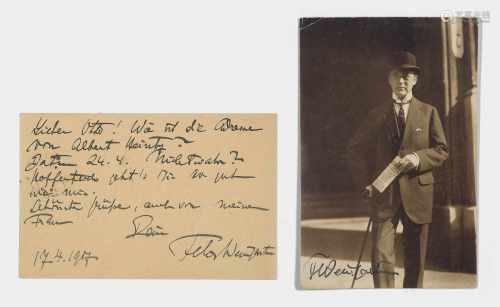 Lieber Otto! Wie ist die Adresse
von Albert Heintz?
24.4. Nicht wahr?
Hoffentlich geht's Dir so gut
wie mir.
Schönste Grüße, auch von meiner
Frau
Dein
Felix Weingartner
17.4.1917
FWeingartner